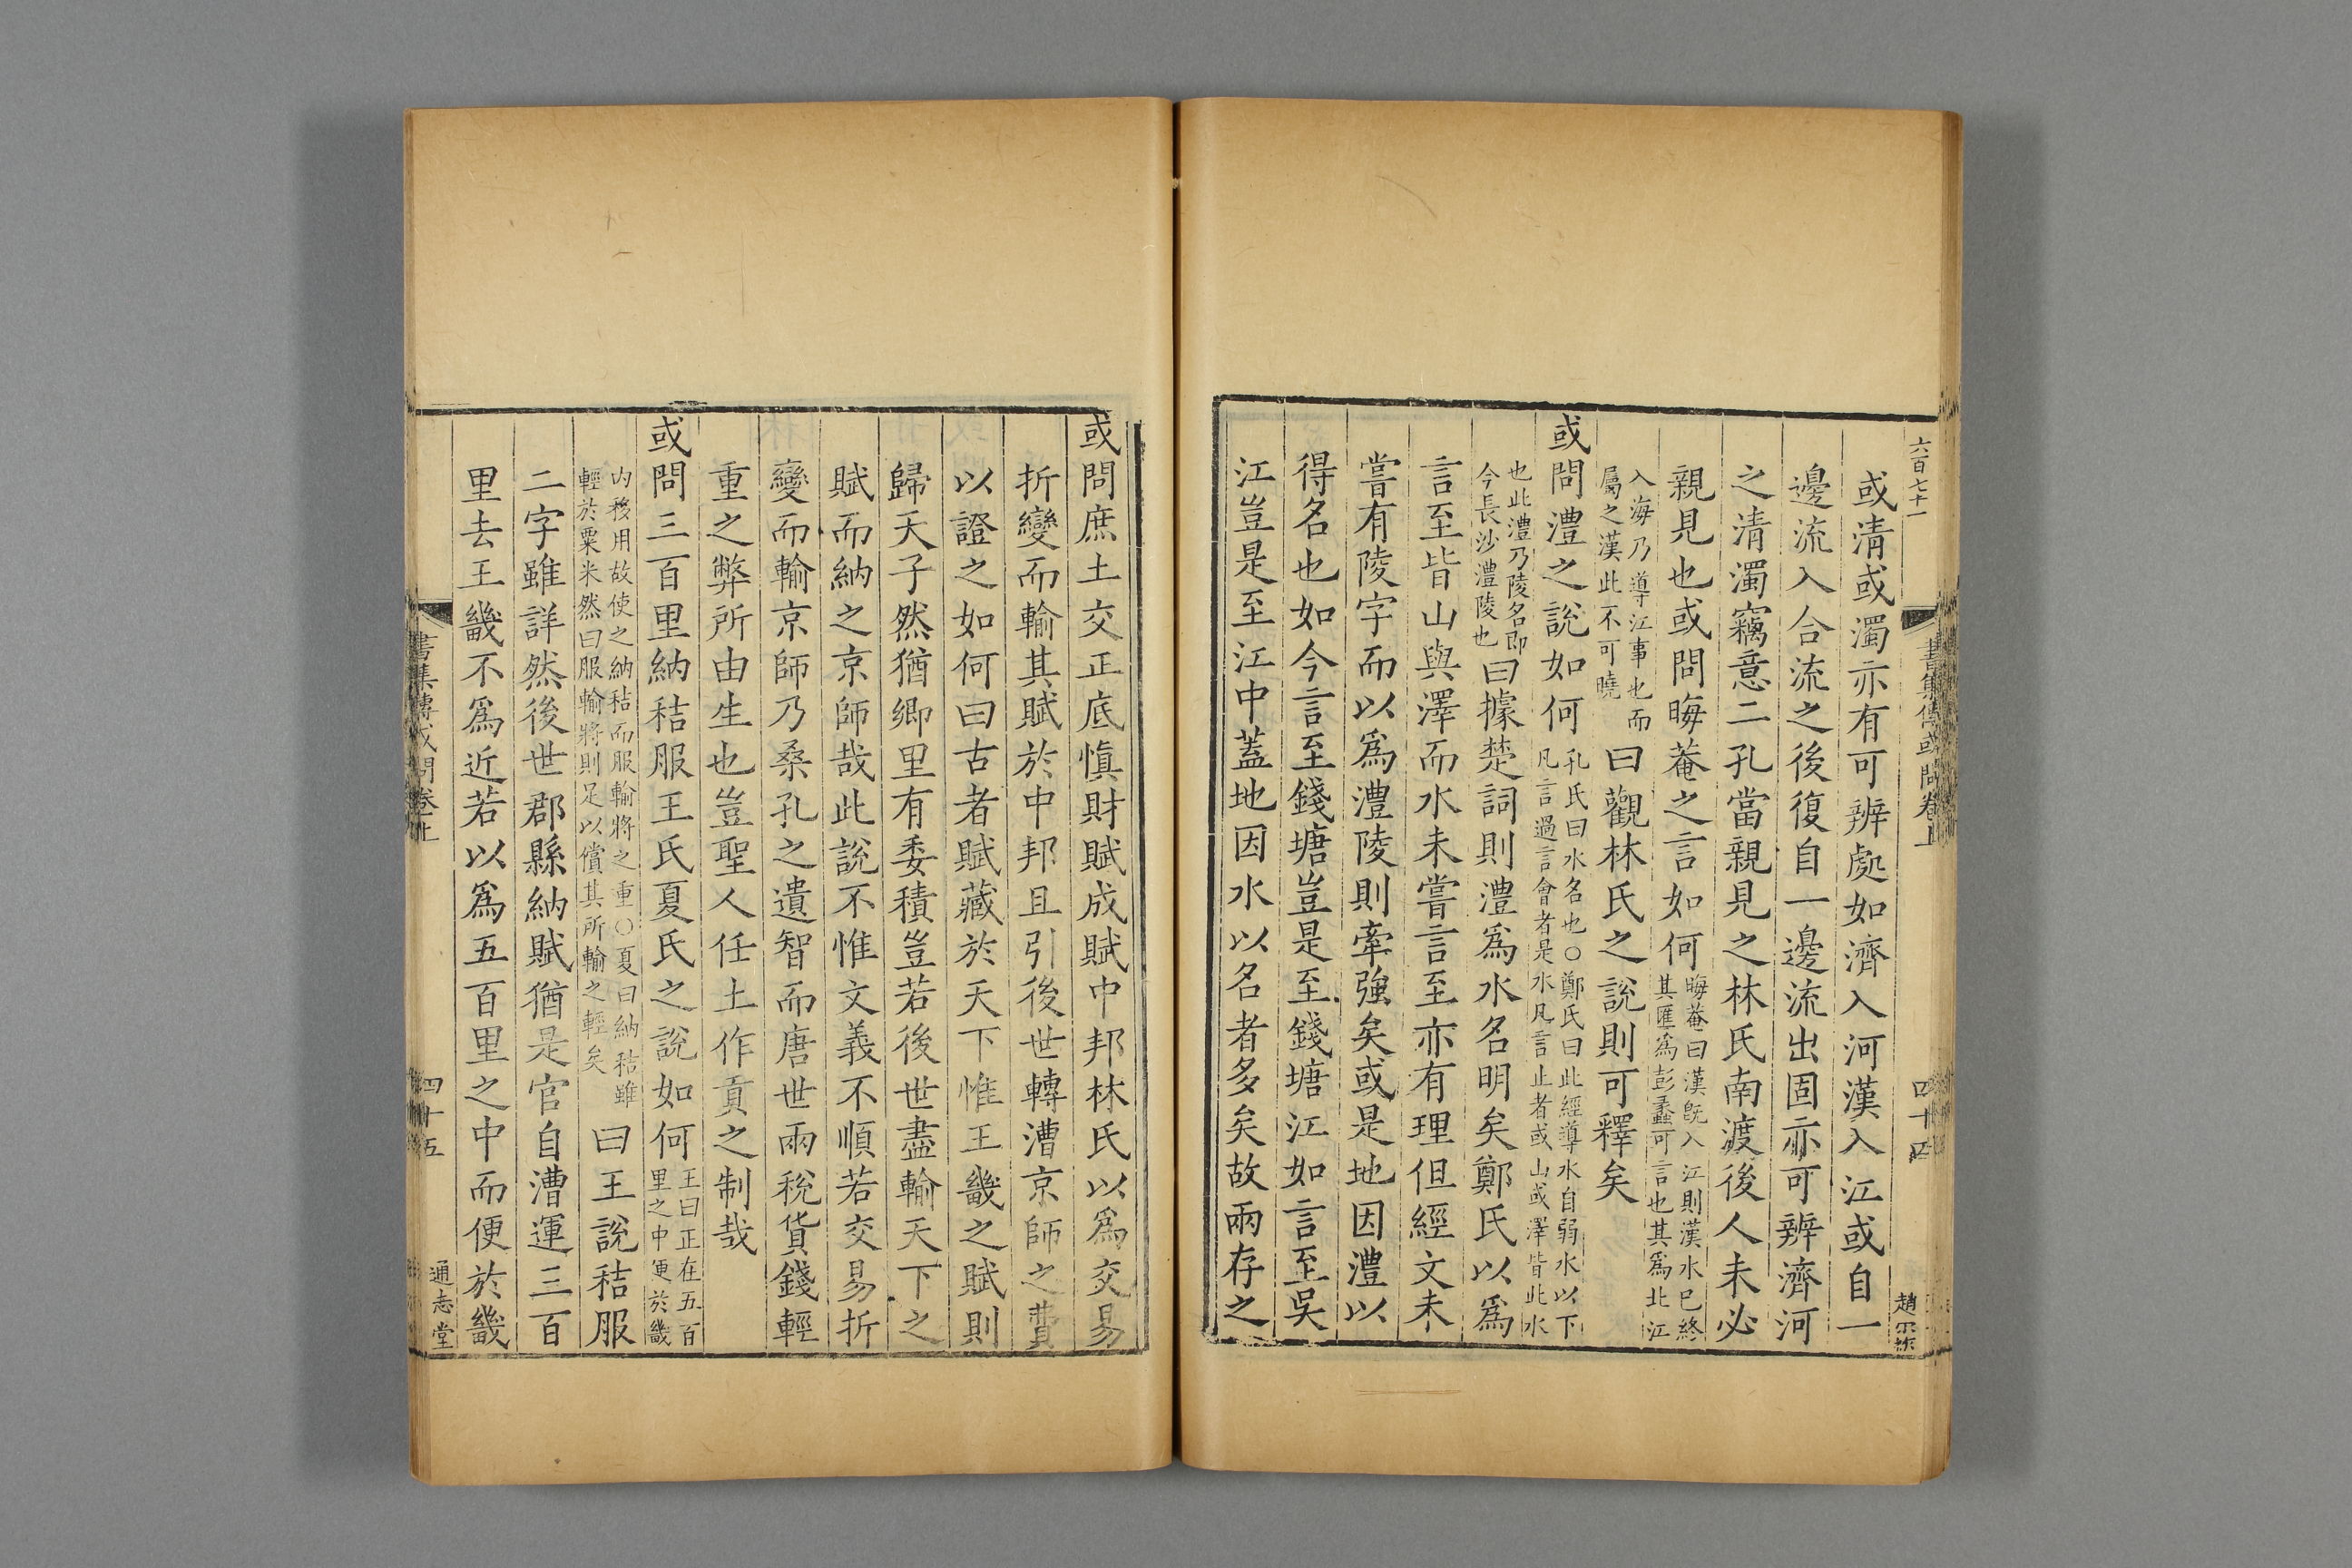 六百七十一
書集傳或問卷上
四十四
或清或濁亦有可辨處如濟入河漢入江或自一
邊流入合流之後復自一邊流出固亦可辨濟河
之清濁竊意二孔當親見之林氏南渡後人未必
親見也或問晦菴之言如何晦菴曰漢旣入江則漢水已終
其匯爲彭蠡可言也其爲北江
入海乃導江事也而
屬之漢此不可曉曰觀林氏之說則可釋矣
或問澧之說如何孔氏曰水名也○鄭氏曰此經導水自弱水以下
凡言過言會者是水凡言止者或山或澤皆此水
也此澧乃陵名卽
今長沙澧陵也曰據楚詞則澧爲水名明矣鄭氏以爲
言至皆山與澤而水未嘗言至亦有理但經文未
嘗有陵字而以爲澧陵則牽強矣或是地因澧以
得名也如今言至錢塘豈是至錢塘江如言至吳
江豈是至江中蓋地因水以名者多矣故兩存之
或問庶土交正底愼財賦成賦中邦林氏以爲交易
折變而輸其賦於中邦且引後世轉漕京師之費
以證之如何曰古者賦藏於天下惟王畿之賦則
歸天子然猶鄉里有委積豈若後世盡輸天下之
賦而納之京師哉此說不惟文義不順若交易折
變而輸京師乃桑孔之遺智而唐世兩稅貨錢輕
重之弊所由生也豈聖人任土作貢之制哉
或問三百里納秸服王氏夏氏之說如何王曰正在五百
里之中便於畿
内移用故使之納秸而服輸將之重○夏曰納秸雖
輕於粟米然曰服輸將則足以償其所輸之輕矣曰王說秸服
二字雖詳然後世郡縣納賦猶是官自漕運三百
里去王畿不爲近若以爲五百里之中而便於畿
書集傳或問卷上
四十五
通志堂